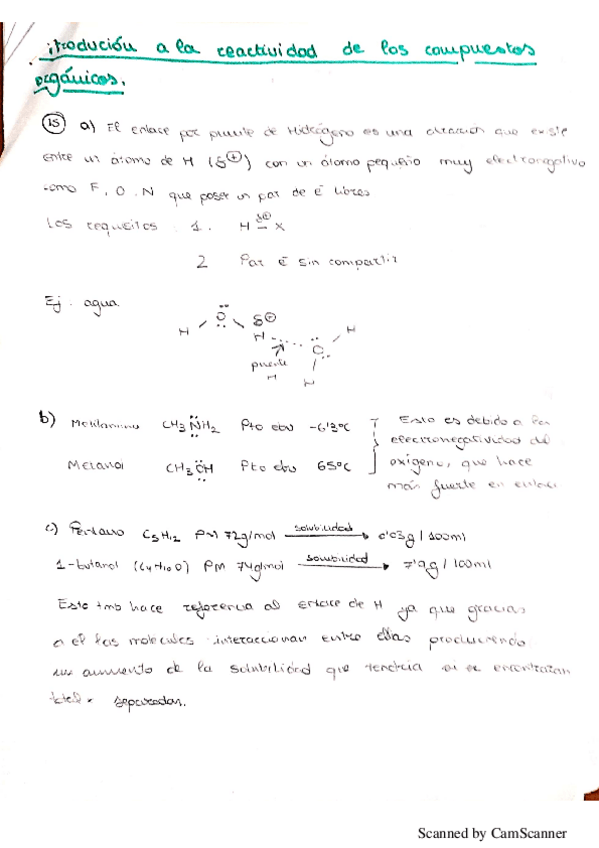 itrodución a la reactividad de los compuestos
orgánicos.
15 a) El enlace por puente de Hidrógeno es una atracción que existe
entre un átomo de H (δ⊕) con un átomo pequeño muy electronegativo
como F, O, N que poser un par de ē libres
Los requisitos 1. H δ⊕ — X
2 Par ē sin compartir
Ej. agua.
H O δ⊕
H
H O
puente
H H
b) Metilamina CH3N̈H2 Pto ebu -6'3ºC Esto es debido a la
electronegatividad del
Metanol CH3ÖH Pto ebu 65ºC oxígeno, que hace
más fuerte en enlace
c) Pentano C5H12 PM 72g/mol solubilidad → 0'03g/100ml
1-butanol (C4H10O) PM 74g/mol solubilidad → 7'9g/100ml
Esto tmb hace referencia al enlace de H ya que gracias
a el las moleculas interaccionan entre ellas produciendo
aumento de la solubilidad que tendria si se encontraran
separadas.
Scanned by CamScanner